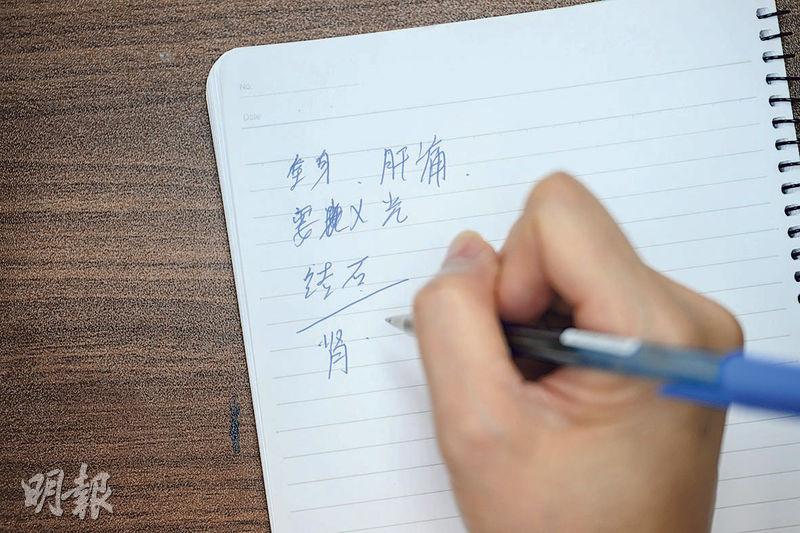 No.
Date
全身、肝痛.
要照X光
结石
肾.
明報